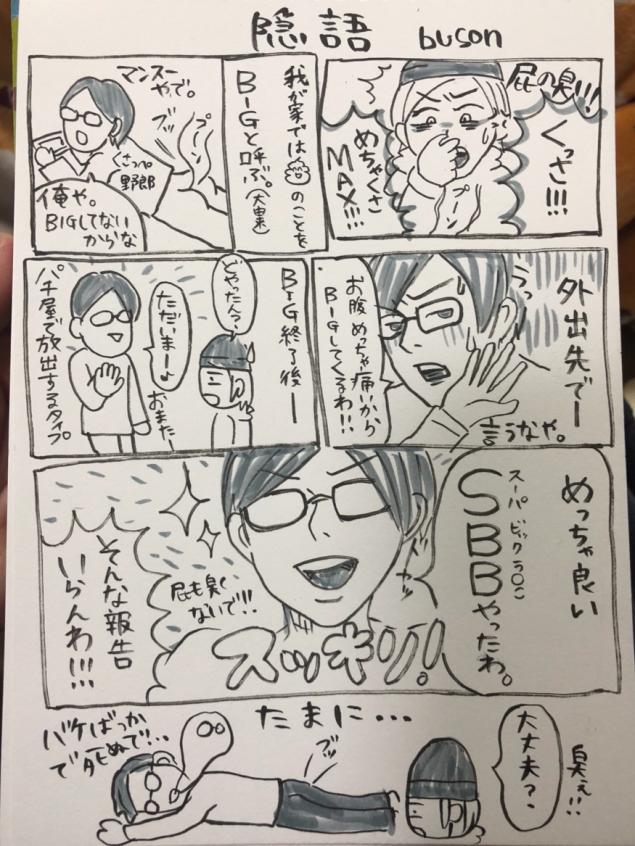 隠語 buson
屁の臭!!!
くっさ!!!
プーン
めちゃくさ
MAX!!!
我が家では のことを
BIGと呼ぶ。(大由来)
マンスー
やで。
ブッ
プーン
くさっぺ
野郎
俺や。
BIGしてない
からな
外出先でー
うっ
お腹めっちゃ痛いから
BIGしてくるわ!!
言うなや。
BIG終了後ー
どやったん?
ただいまー♪
おまた
パチ屋で放出するタイプ
めっちゃ良い
スーパービックう○こ
SBBやったわ。
スッキリ!
屁も臭く
ないで!!
そんな報告
いらんわ!!!
たまに…
臭ぇ!!
大丈夫?
ブッ
バケばっか
で死ぬで!..